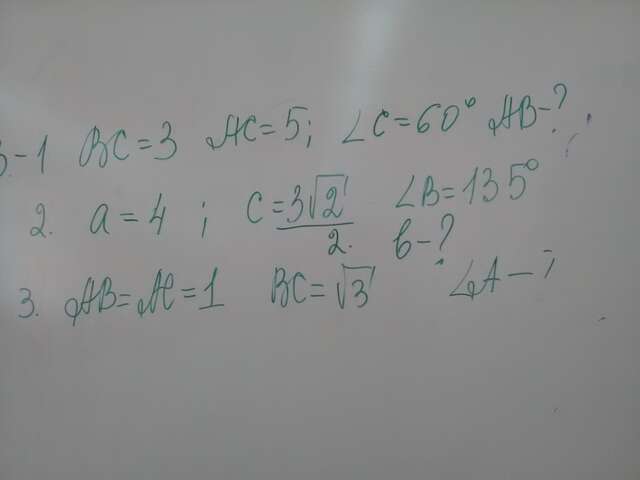 В-1 BC=3 AC=5; ∠C=60° AB-?
2. a=4; c=3√2/2. ∠B=135° b-?
3. AB=AC=1 BC=√3 ∠A-?